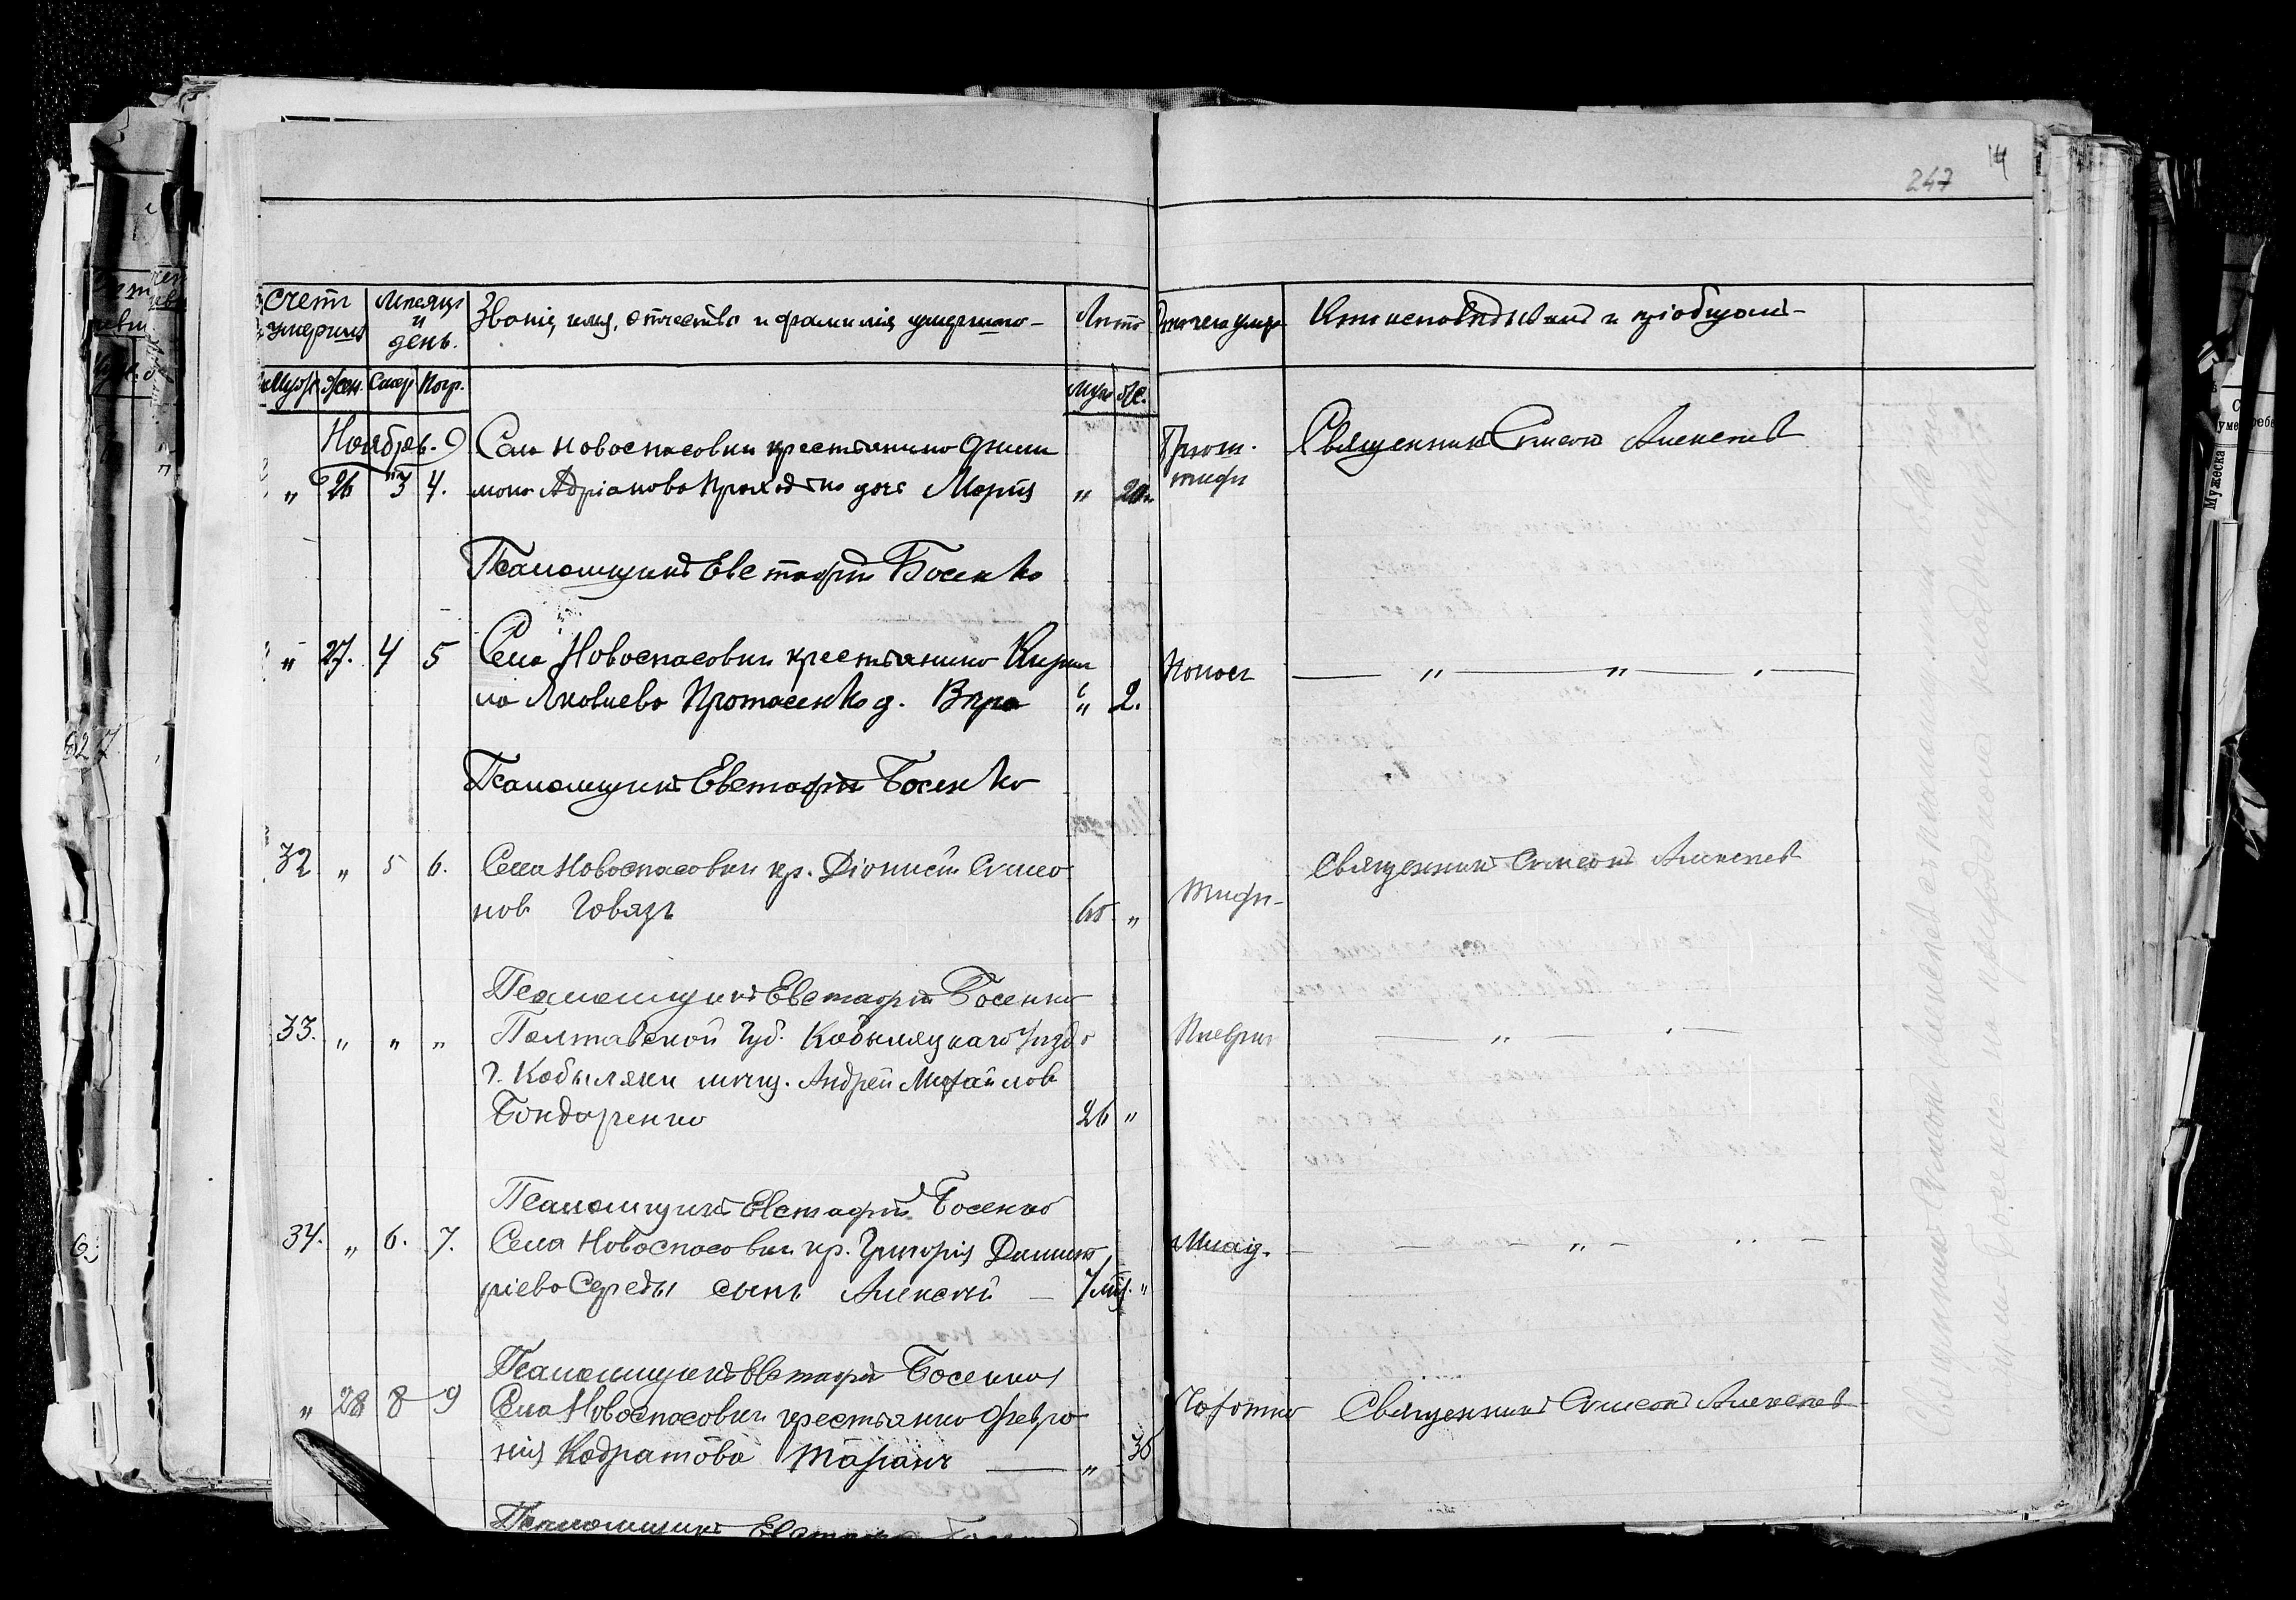 247 14
Счетъ умерших
Месяцъ и день.
Званіе, имя, отчество и фамилія умершаго
Лета
Отъ чего умер
Кто исповедывал и приобщал
Муж. Жен. Смер. Погр.
Муж. Же.
Ноябрь.
" 26 3 4.
Села Новоспасовки крестьянина Фили
мона Адріанова дочь Марія "
тифъ
Священникъ Симеонъ Алексеевъ
Псаломщикъ Евстафій Босенко
" 27. 4 5
Села Новоспасовки крестьянина Кирил
ла Яковлева Протасенко д. Вера " 2.
Поносъ
Псаломщикъ Евстафій Босенко
32 " 5 6.
Села Новоспасовки кр. Діонисій Симео
нов Говязъ "
Тифъ
Священникъ Симеонъ Алексеевъ
Псаломщикъ Евстафій Босенко
33. " " "
Полтавской Губ. Кобыляцкаго Уезда
г. Кобыляки мещ. Андрей Михайлов
Бондаренко 26 "
Плеврит
Псаломщикъ Евстафій Босенко
34. " 6. 7.
Села Новоспасовки кр. Григорія Димит
ріева Середы сынъ Алексей 7 м. "
Млад.
Псаломщикъ Евстафій Босенко
" 28 8 9
Села Новоспасовки крестьянка Февро
нія Кодратова Таранъ "
Чахотка
Священникъ Симеонъ Алексеевъ
Псаломщикъ Евстафій
Мужеска